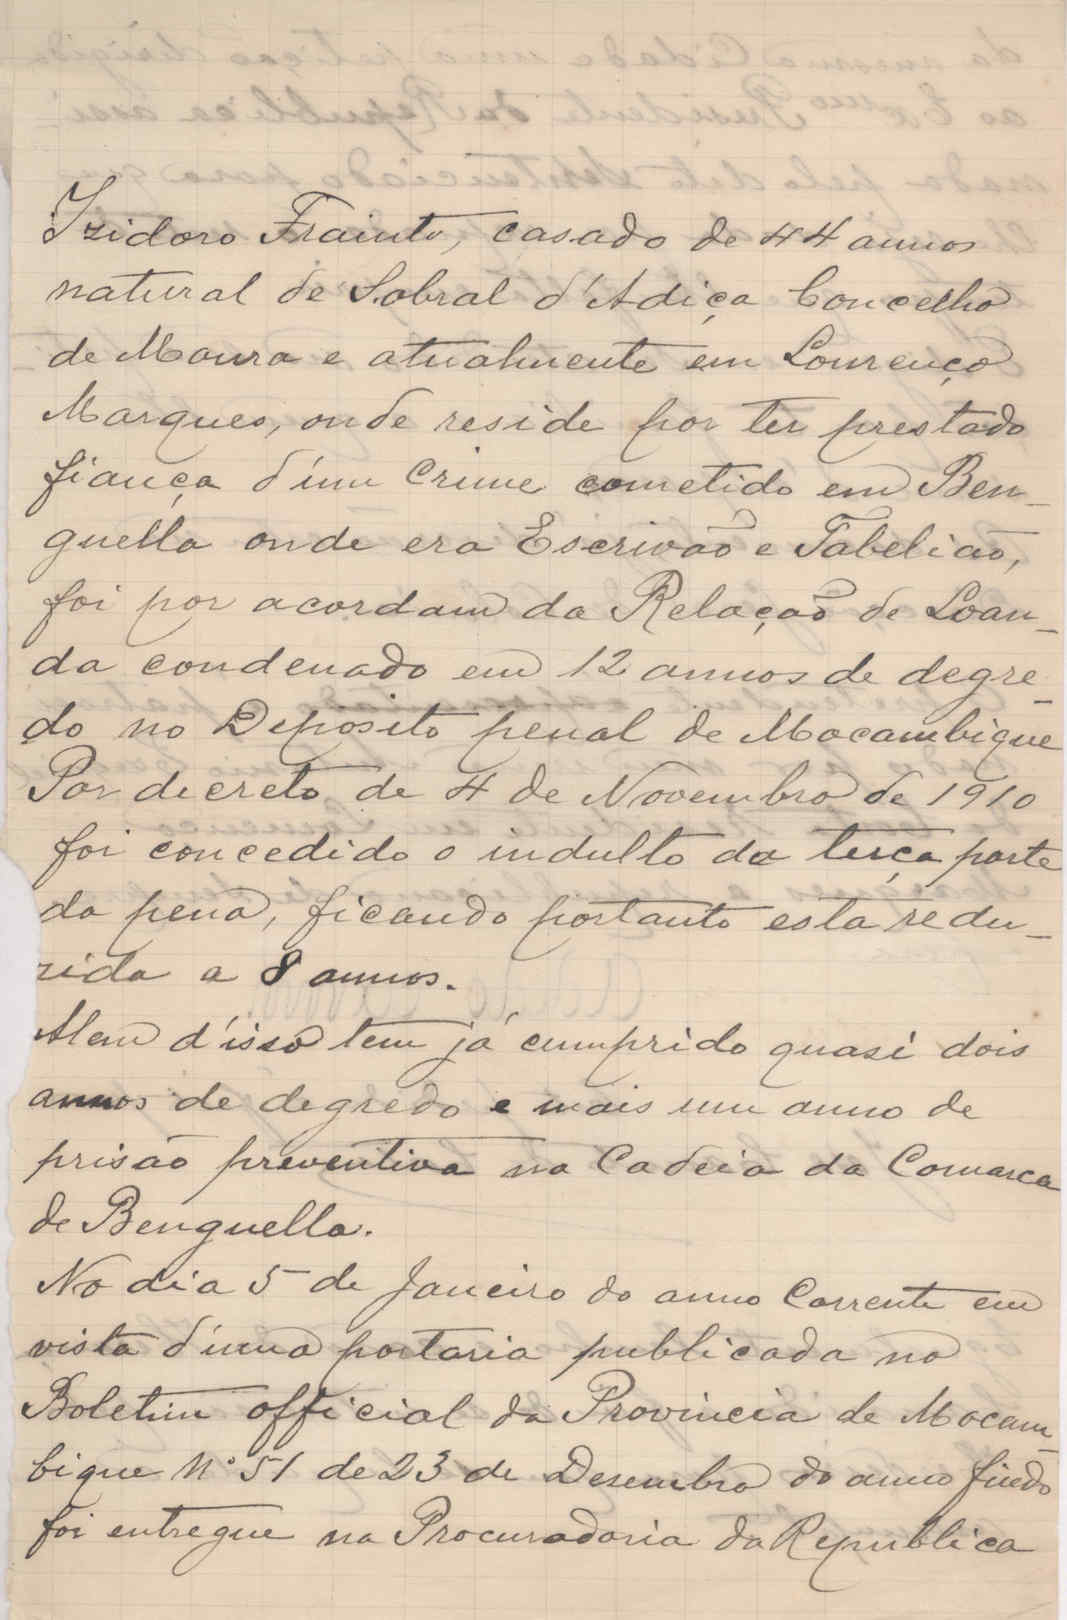 Izidoro Frainto, casado de 44 annos
natural de Sobral d'Adiça Concelho
de Moura e atualmente em Lourenço
Marques, onde reside por ter prestado
fiança d'um Crime cometido em Ben-
guella onde era Escrivão e Tabelião,
foi por acordam da Relação de Loan-
da condenado em 12 annos de degre-
do no Deposito penal de Mocambique
Por decreto de 4 de Novembro de 1910
foi concedido o indulto da terça parte
da pena, ficando portanto esta redu-
zida a 8 annos.
Alem d'isso tem já cumprido quasi dois
annos de degredo e mais um anno de
prisão preventiva na Cadeia da Comarca
de Benguella.
No dia 5 de Janeiro do anno Corrente em
vista d'uma portaria publicada no
Boletim official da Provincia de Mocam-
bique Nº 51 de 23 de Desembro do anno findo
foi entregue na Procuradoria da Republica